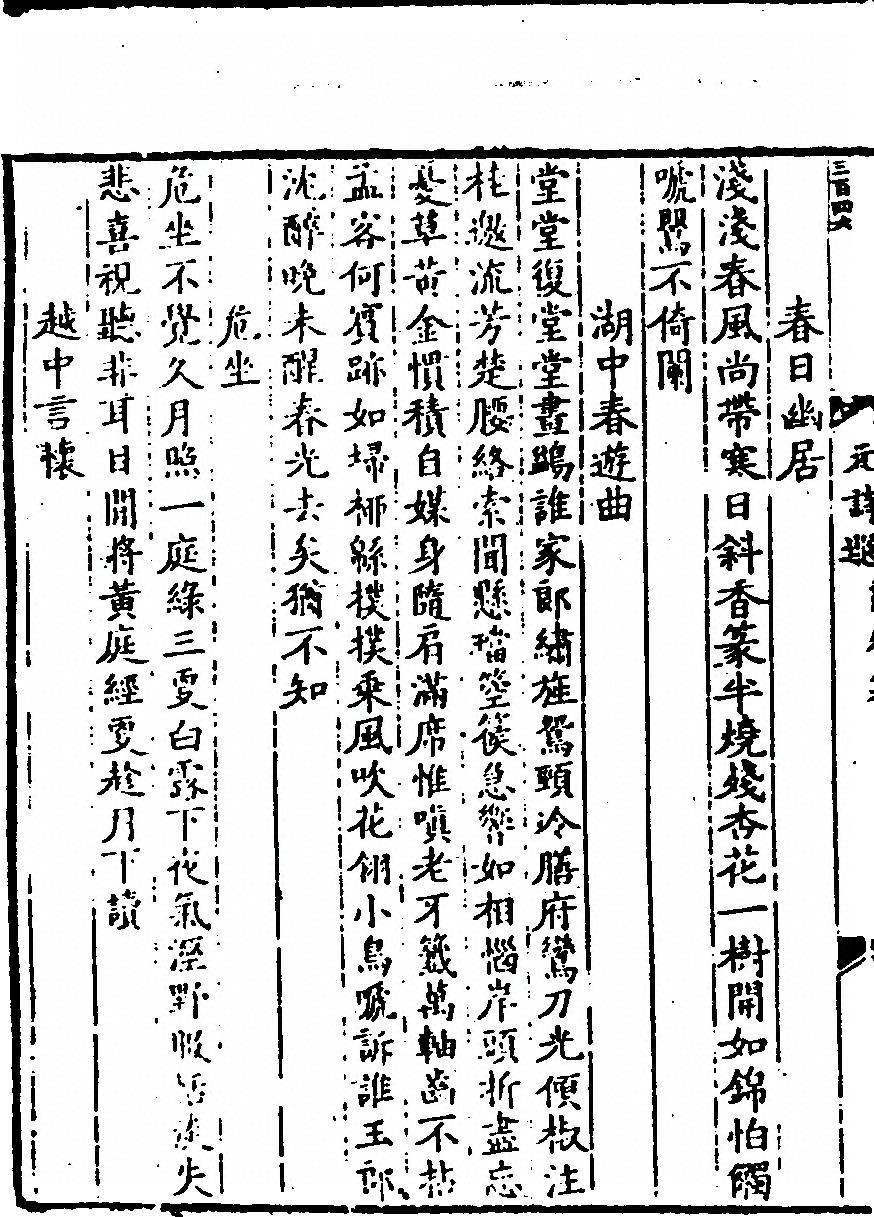 三百四六
元詩
春日幽居
淺淺春風尚帶寒日斜香篆半燒殘杏花一樹開如錦怕觸
唬鸎不倚闌
湖中春遊曲
堂堂復堂堂畫鷁誰家郎繡旌鴛頸冷膳府鸞刀光傾椒注
桂邀流芳楚腰絡索閒懸璫箜篌急響如相惱岸頭折盡忘
憂草黄金慣積自媒身隋右滿席惟嗔老牙籤萬軸高不拈
孟客何賓跡如掃栁緜撲撲乘風吹花翎小鳥唬訴誰王郎
沈醉晚未醒春光去矣猶不知
危坐
危坐不覺久月照一庭綠三更白露下夜氣溼野服淡失
悲喜視聽非耳目閒將黃庭經更趂月下讀
越中言懷